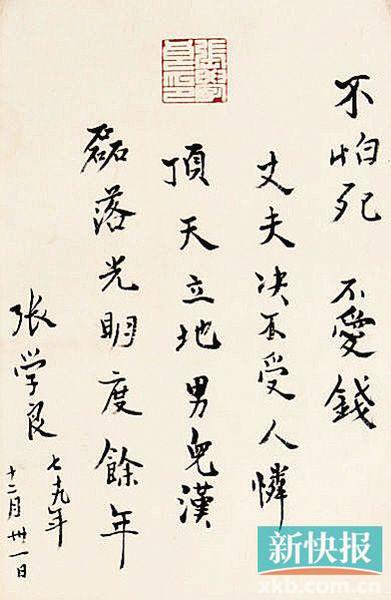 張學良印
不怕死 不愛錢
丈夫决不受人憐
頂天立地男兒漢
磊落光明度餘年
张学良
七九年
十二月卅一日
新快报
xkb.com.cn